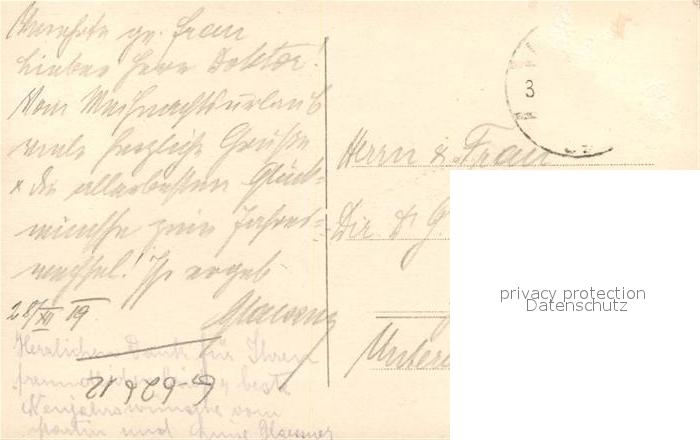 Verehrte gn. Frau
Lieber Herr Doktor!
Vom Weihnachtsurlaub
viele herzliche Grüße
+ die allerbesten Glück-
wünsche zum Jahres-
wechsel! Ihr ergeb.
28/XII 19
Herzlichen Dank für Ihren
beste
Neujahrswünsche vom
und
6-629 12
3
Herrn & Frau
Dir. Dr G.
Unter
privacy protection
Datenschutz